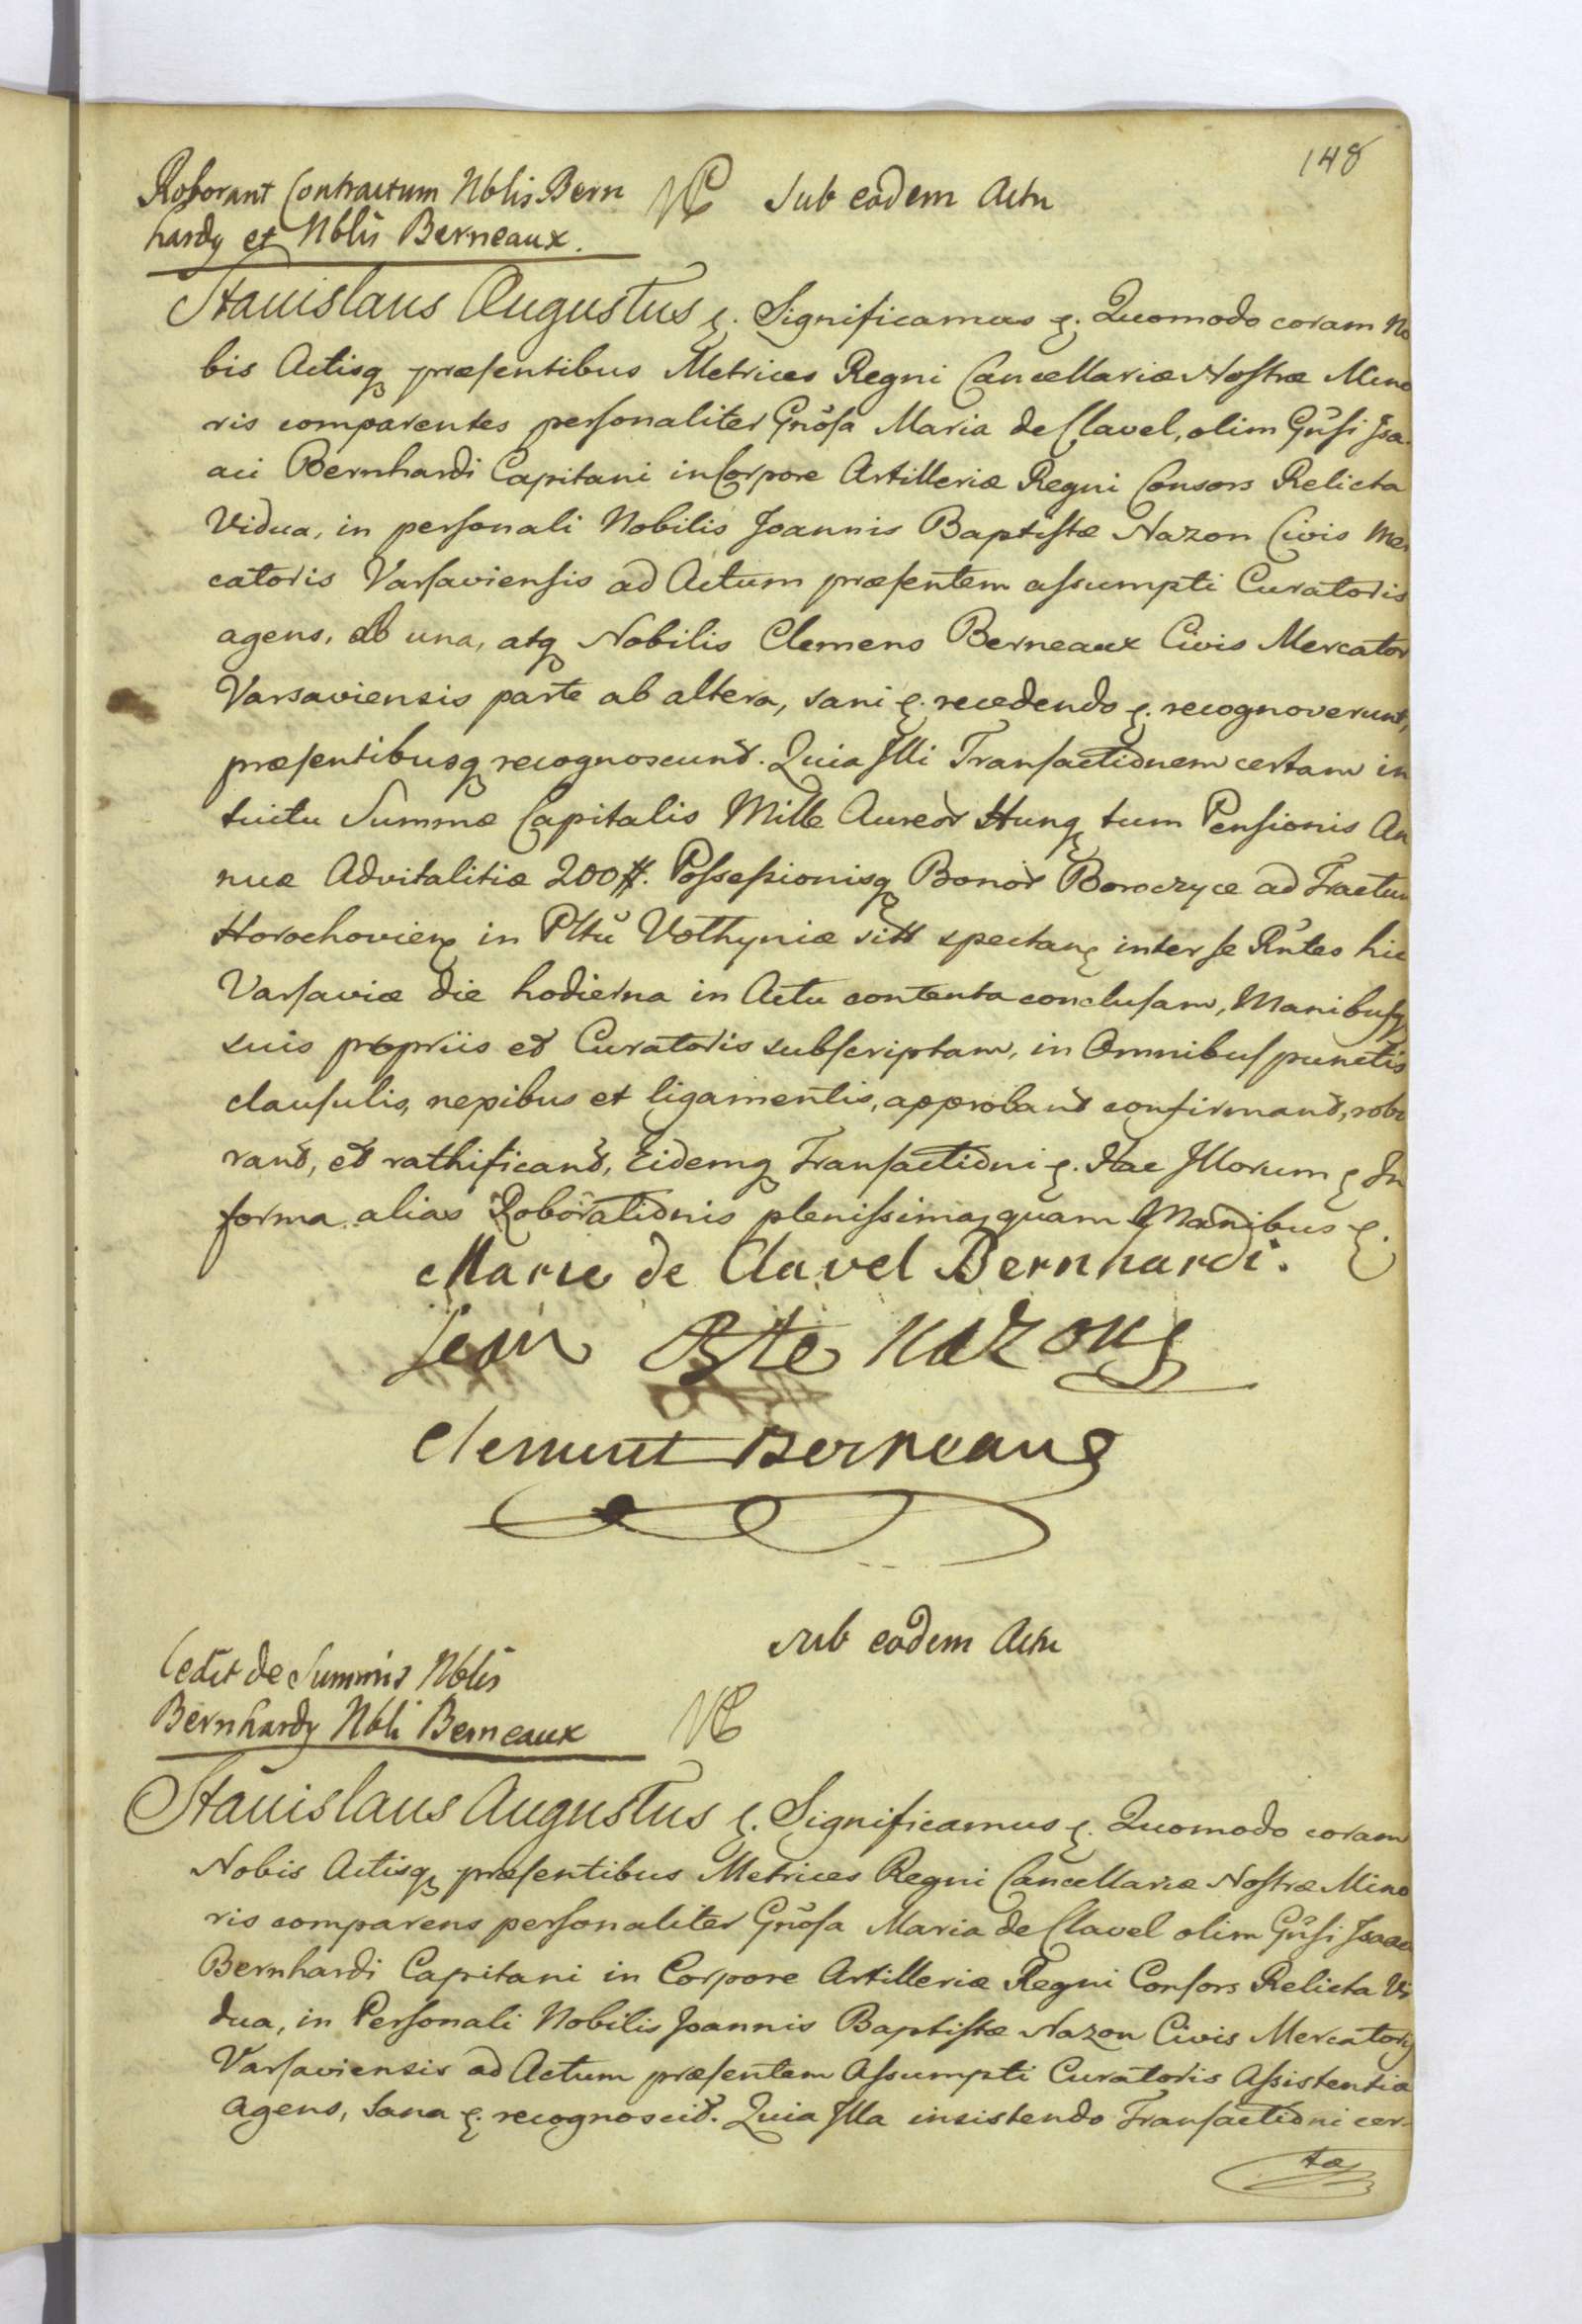 148
Roborant Contractum Nblis Bern
hardy et Nblis Berneaux.
Sub eodem Actu
Stanislaus Augustus &. Significamus &. Quomodo coram No
bis Actisq præsentibus Metrices Regni Cancellariæ Nostræ Mino
ris comparentes personaliter Gnõsa Maria de Clavel, olim Gñsi Isa-
aci Bernhardi Capitani in Corpore Artilleriæ Regni Consors Relicta
Vidua, in personali Nobilis Joannis Baptistæ Nazon Civis Mer
catoris Varsaviensis ad Actum præsentem assumpti Curatoris
agens, ab una, atq Nobilis Clemens Berneaux Civis Mercator
Varsaviensis parte ab altera, sani &. recedendo &. recognoverunt,
præsentibusq recognoscunt. Quia Illi Transactionem certam in
tuitu Summæ Capitalis Mille Aureor Hung tum Pensionis An
nuæ Advitalitiæ 200 #. Possessionisq Bonor Boroczyce ad Tractum
Horochovien in Pltũ Volhyniæ sitt spectan inter se Rñtes hic
Varsaviæ die hodierna in Actu contenta conclusam, Manibusq
suis propriis et Curatoris subscriptam, in Omnibus punctis
clausulis, nexibus et ligamentis, approbant confirmant, robo
rant, et rathificant, Eidemq Transactioni &. Hac Illorum & In
forma alias Roborationis plenissima, quam Manibus &.
Marie de Clavel Bernhardi.
Jean Bste Nazon
Clement Berneaux
Sub eodem Actu
Cedit de Summis Nblis
Bernhardy Nbli Berneaux
Stanislaus Augustus &. Significamus &. Quomodo coram
Nobis Actisq præsentibus Metrices Regni Cancellariæ Nostræ Mino
ris comparens personaliter Gnõsa Maria de Clavel olim Gñsi Isaaci
Bernhardi Capitani in Corpore Artilleriæ Regni Consors Relicta Vi
dua, in Personali Nobilis Joannis Baptistæ Nazon Civis Mercatoris
Varsaviensis ad Actum præsentem Assumpti Curatoris Assistentia
Agens, Sana &. recognoscit. Quia Illa insistendo Transactioni cer-
tæ